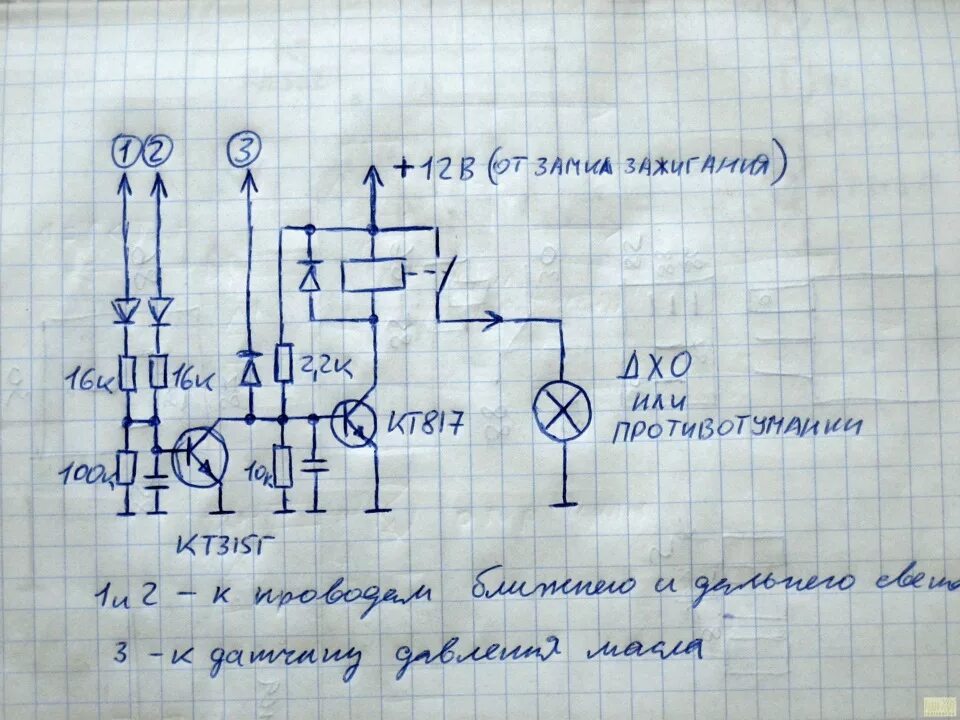 1 2 3
+12В (ОТ ЗАМКА ЗАЖИГАНИЯ)
16к 16к 2,2к
ДХО
ИЛИ
ПРОТИВОТУМАНКИ
КТ817
100к 10к
КТ315Г
1 и 2 – к проводам ближнего и дальнего света
3 – к датчику давления масла